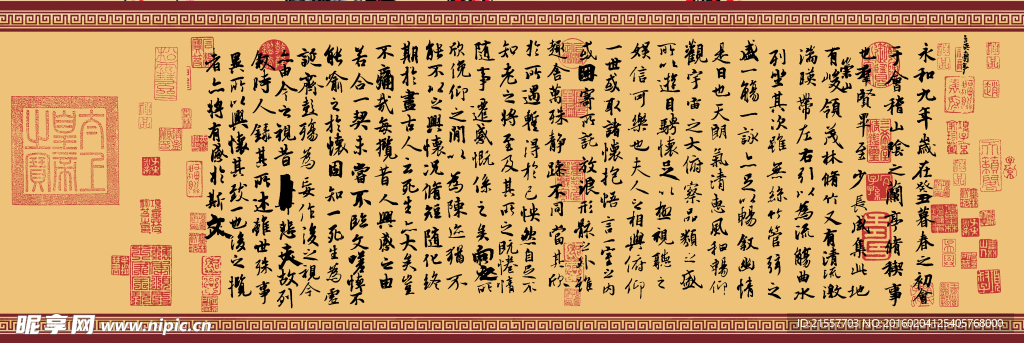 永和九年歲在癸丑暮春之初會
于會稽山陰之蘭亭脩禊事
也羣賢畢至少長咸集此地
有崇山峻領茂林脩竹又有清流激
湍暎帶左右引以為流觴曲水
列坐其次雖無絲竹管弦之
盛一觴一詠亦足以暢叙幽情
是日也天朗氣清惠風和暢仰
觀宇宙之大俯察品類之盛
所以遊目騁懷足以極視聽之
娛信可樂也夫人之相與俯仰
一世或取諸懷抱悟言一室之內
或因寄所託放浪形骸之外雖
趣舍萬殊靜躁不同當其欣
於所遇暫得於己怏然自足不
知老之將至及其所之既惓情
隨事遷感慨係之矣向之所
欣俛仰之閒以為陳迹猶不
能不以之興懷況脩短隨化終
期於盡古人云死生亦大矣豈
不痛哉每攬昔人興感之由
若合一契未嘗不臨文嗟悼不
能喻之於懷固知一死生為虛
誕齊彭殤為妄作後之視今
亦由今之視昔悲夫故列
叙時人錄其所述雖世殊事
異所以興懷其致一也後之攬
者亦將有感於斯文
太上皇帝之寶
昵享网 www.nipic.cn
ID:21557703 NO:20160204125405768000